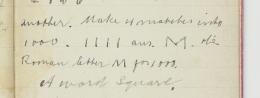 another. Make 4 matches into
1000. 1111 ans. M. the
Roman letter M for 1000.
A word Square.